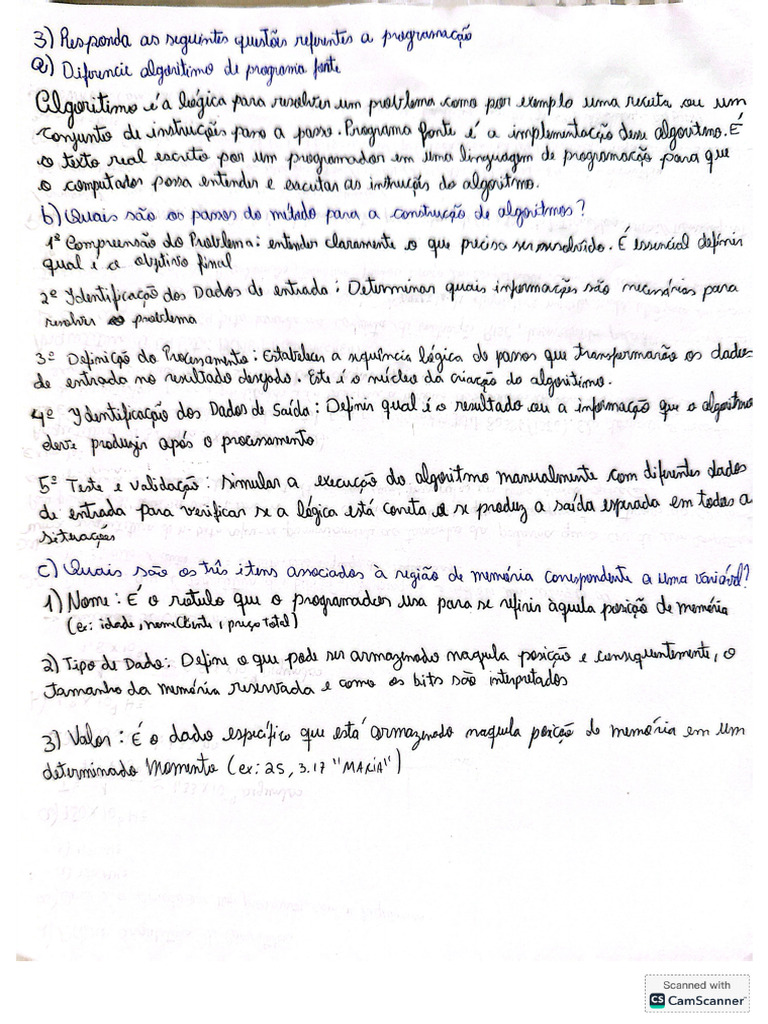 3) Responda as seguintes questões referentes a programação
a) Diferencie algoritimo de programa fonte
Algoritimo é a lógica para resolver um problema como por exemplo uma receita ou um
conjunto de instruções passo a passo. Programa fonte é a implementação desse algoritmo. É
o texto real escrito por um programador em uma linguagem de programação para que
o computador possa entender e executar as instruções do algoritmo.
b) Quais são os passos do método para a construção de algoritmos?
1º Compreensão do Problema: entender claramente o que precisa ser resolvido. É essencial definir
qual é o objetivo final
2º Identificação dos Dados de entrada: Determinar quais informações são necessárias para
resolver o problema
3º Definição do Processamento: Estabelecer a sequência lógica de passos que transformarão os dados
de entrada no resultado desejado. Este é o núcleo da criação do algoritimo.
4º Identificação dos Dados de Saída: Definir qual é o resultado ou a informação que o algoritmo
deve produzir após o processamento
5º Teste e validação: simular a execução do algoritmo manualmente com diferentes dados
de entrada para verificar se a lógica está correta e se produz a saída esperada em todas a
situações
c) Quais são os três itens associados à região de memória correspondente a uma variável?
1) Nome: É o rótulo que o programador usa para se referir àquela posição de memória
(ex: idade, nomeCliente, preço Total)
2) Tipo de Dado: Define o que pode ser armazenado naquela posição e consequentemente, o
tamanho da memória reservada e como os bits são interpretados
3) Valor: É o dado específico que está armazenado naquela posição de memória em um
determinado Momento (ex: 25, 3.17 "MARIA")
Scanned with
CS CamScanner